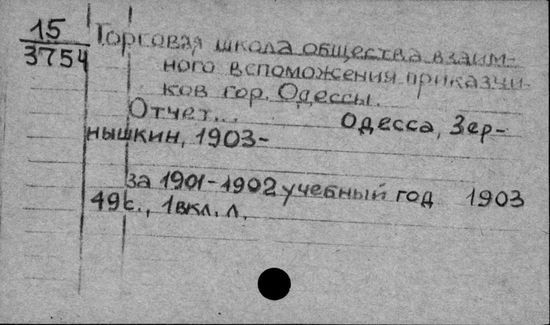 15
3754
Торговая школа общества взаим-
ного вспоможения приказчи-
ков гор. Одессы.
Отчет... Одесса, Зер-
нышкин, 1903-
за 1901-1902 учебный год 1903
49с., 1 вкл. л.